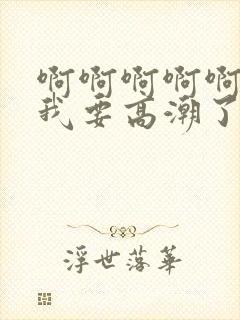 啊啊啊啊啊
我要高潮了
浮世落華